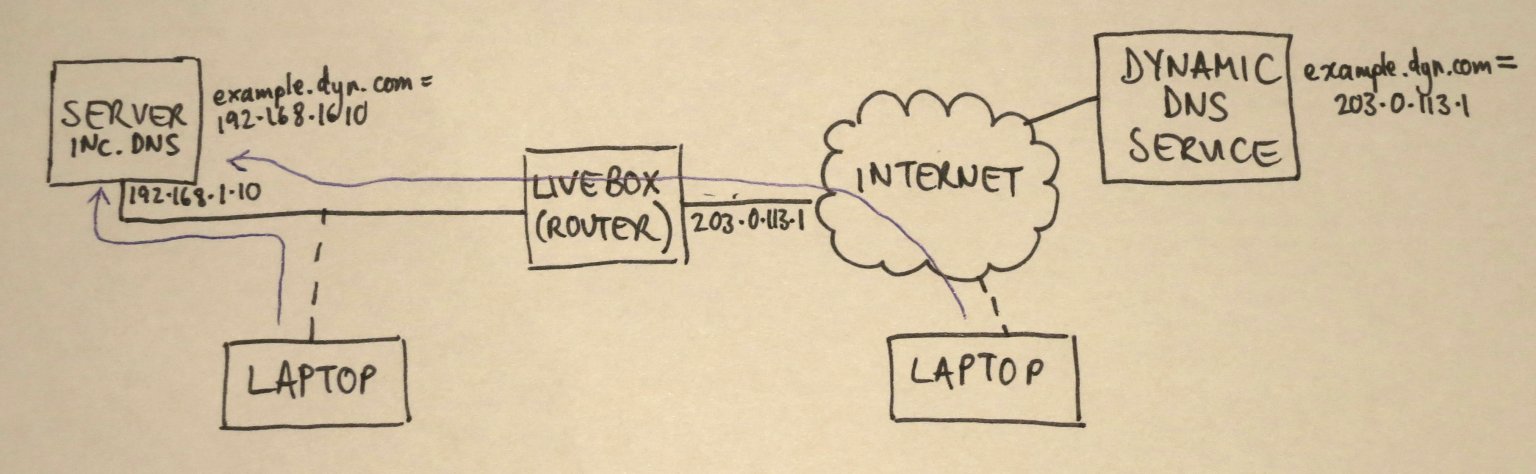 SERVER
INC. DNS
example.dyn.com =
192.168.1.10
192.168.1.10
LIVEBOX
(ROUTER)
203.0.113.1
INTERNET
DYNAMIC
DNS
SERVICE
example.dyn.com =
203.0.113.1
LAPTOP
LAPTOP